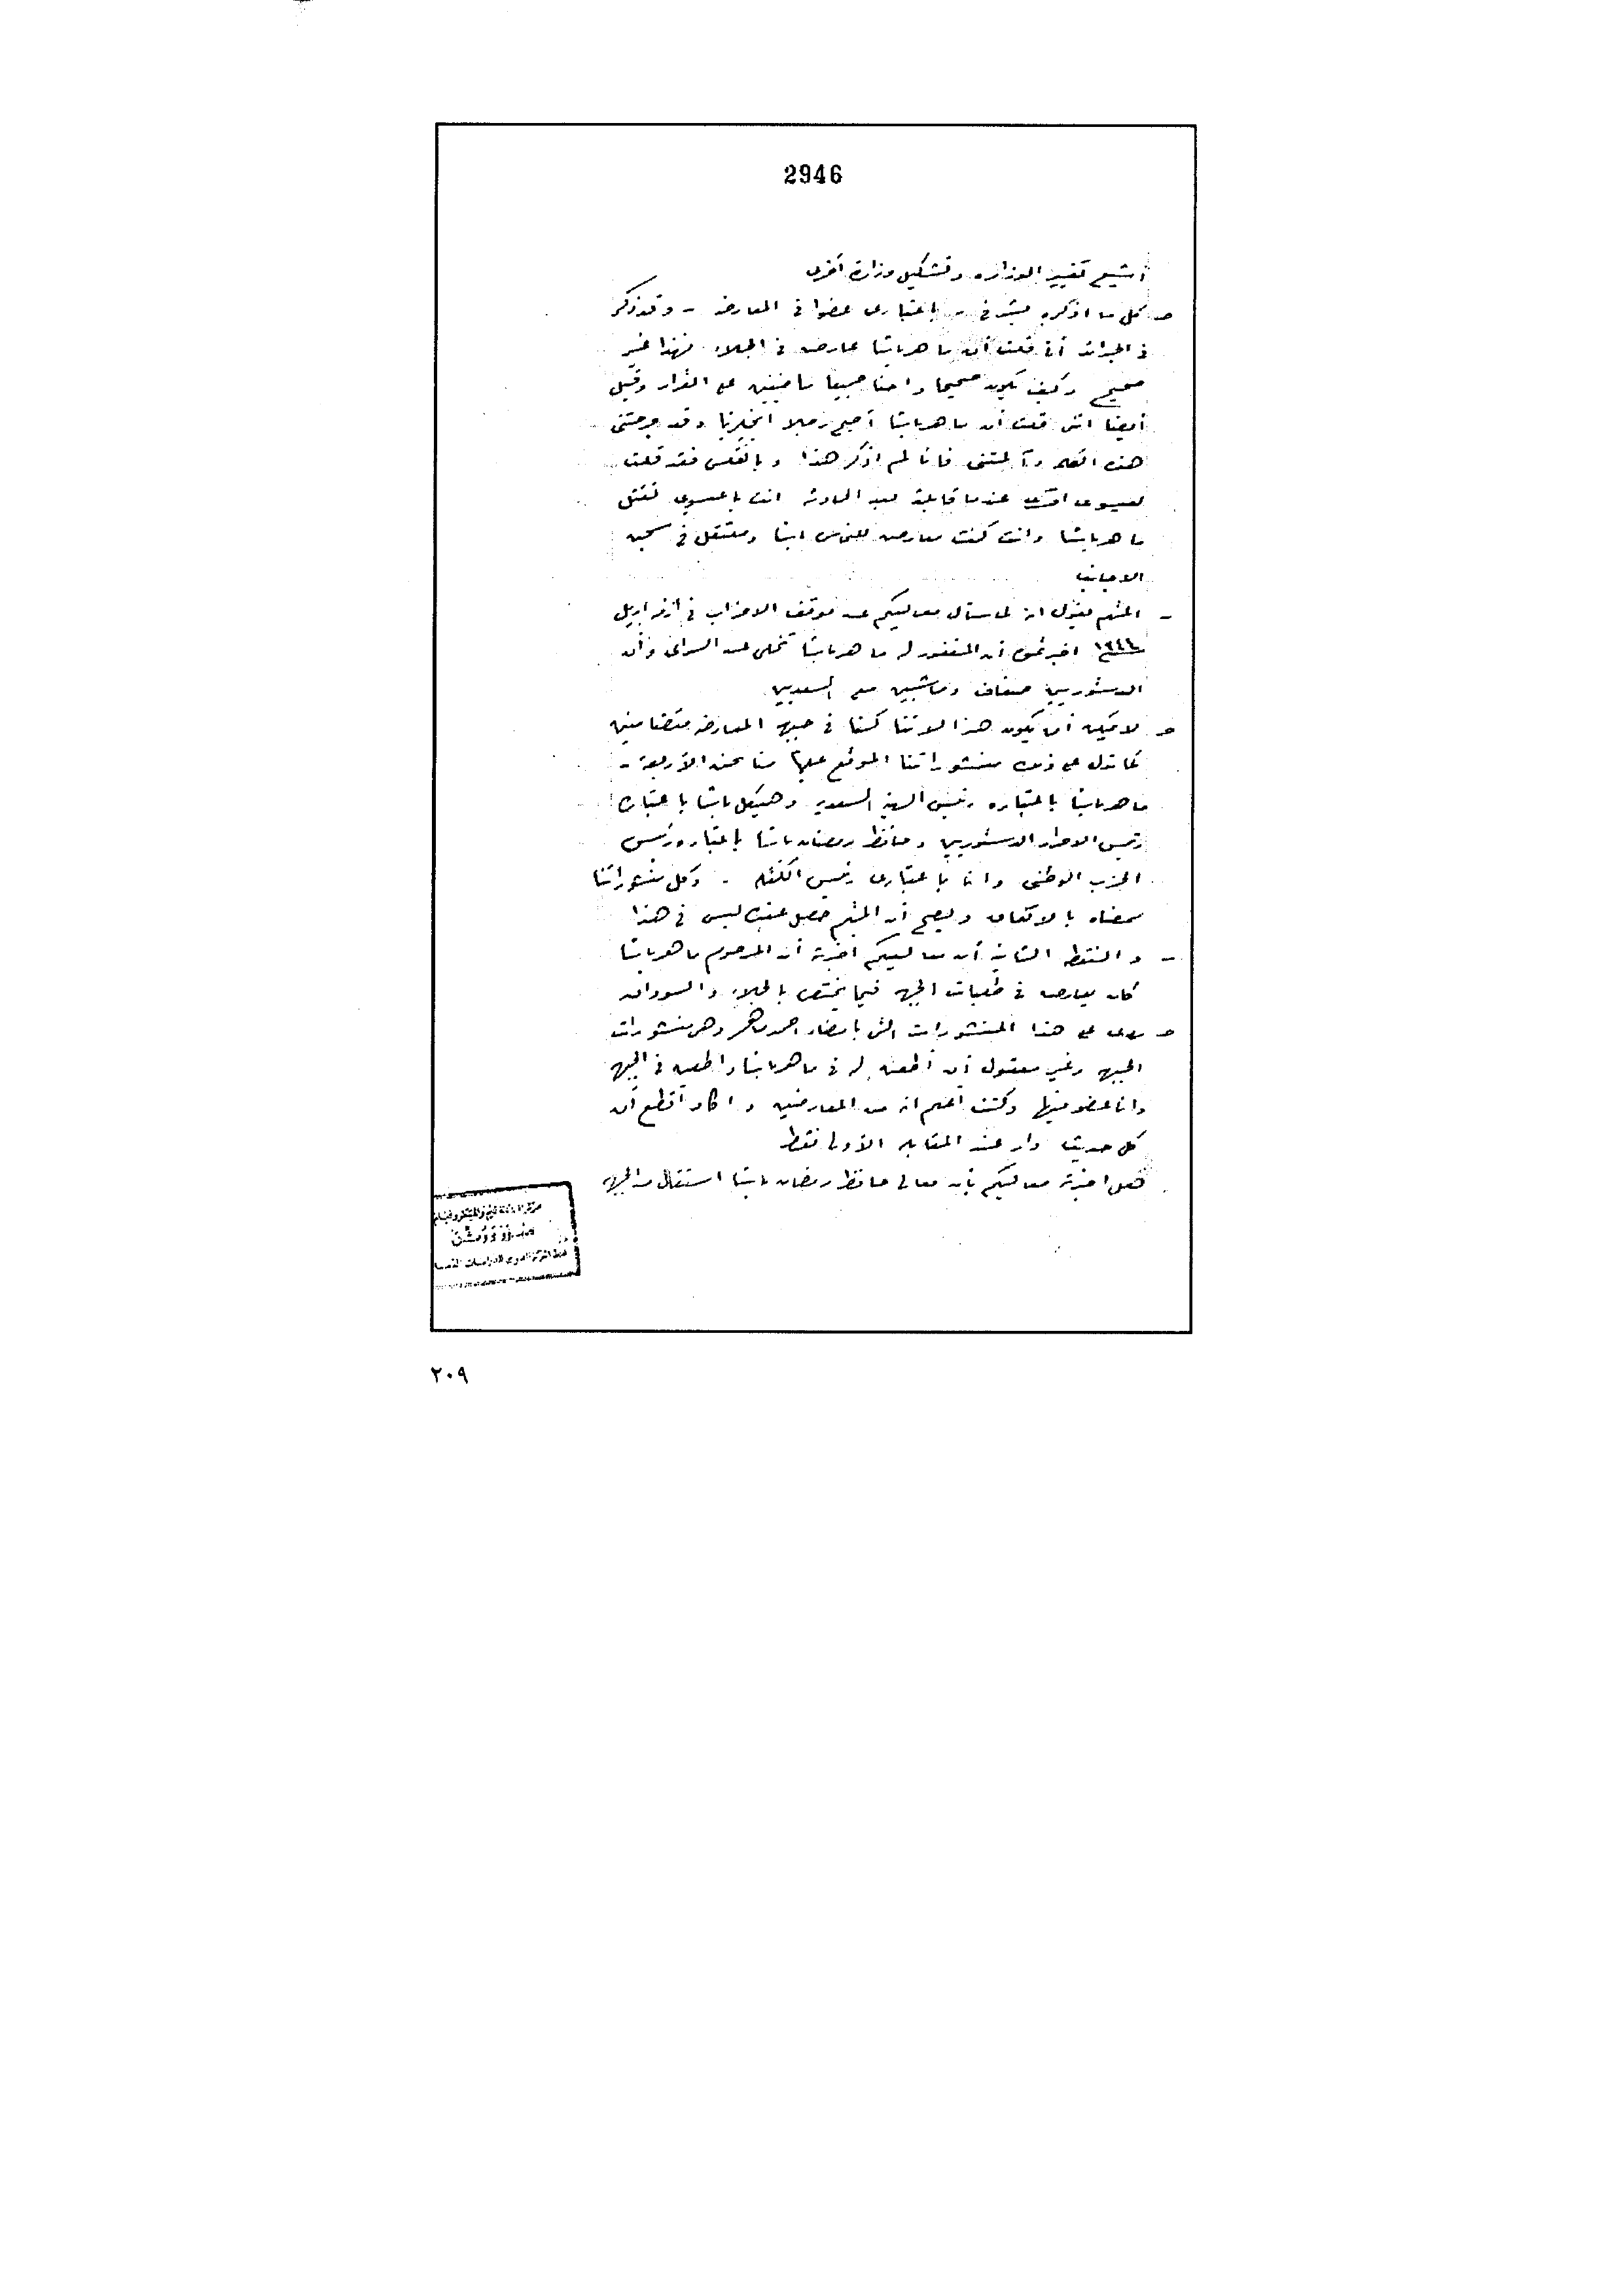 2946
أشيع تغيير الوزاره وتشكيل وزارة أخرى
كل ما اذكره بشرفى - باعتبارى عضوا فى المعارضه - وقد ذكر
فى الجرائد أنى قلت أن ماهر باشا عارض فى الجلاء فهذا غير
صحيح وكيف يكون صحيحا واحنا جميعا ماضيين على القرار وقيل
أيضا اننى قلت أن ماهر باشا أصبح رجلا انجليزيا وقد جرحتنى
هذه وآلمتنى فانا لم اذكر هذا وبالعكس فقد قلت
للعيسوى عندما قابلته بعد الحادثه انت يا عيسوى تقتل
ماهر باشا وانت كنت معارض للنحاس باشا ومعتقل فى سجن
الاجانب
- المتهم يقول انه لما سأل معاليكم عن موقف الاحزاب فى أواخر ابريل
١٩٤٤ اخبرتموه أن المغفور له ماهر باشا تخلى عن السراى وأن
الدستوريين ضعاف وماشيين مع السعديين
لا يمكن أن يكون هذا لاننا كنا فى جبهه المعارضه متضامنين
كما تدل على ذلك منشوراتنا الموقع عليها منا نحن الأربعة -
ماهر باشا باعتباره رئيس الهيئه السعديه وهيكل باشا باعتباره
رئيس الاحرار الدستوريين وحافظ رمضان باشا باعتباره رئيس
الحزب الوطنى وانا باعتبارى رئيس الكتله - وكل منشوراتنا
ممضاه بالاتفاق ويصح أن المتهم حصل عنده لبس فى هذا
- والنقطه الثانيه أن معاليكم اخبرته أن المرحوم ماهر باشا
كان يعارض فى طلبات الجبهه فيما يختص بالجلاء والسودان
على هذا المنشورات التى بامضاء احمد ماهر وهى منشورات
الجبهه وغير معقول أن أطعن له فى ماهر باشا واطعن فى الجبهه
وانا عضو فيها وكنت أعلم انه من المعارضين واكاد أقطع أن
كل حديث دار عند المقابله الأولى فقط
هل اخبرته معاليكم بأن معالى حافظ رمضان باشا استقال من الجبهه
٢٠٩